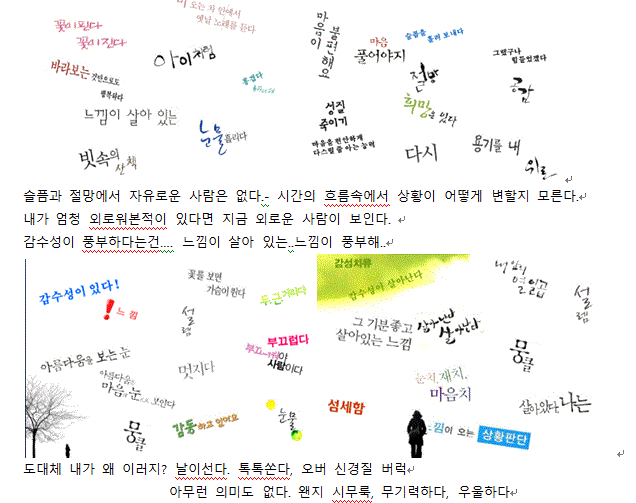 비 오는 차 안에서
옛날 노래를 듣다
꽃이 핀다
꽃이 진다
아이처럼
마음이
불편해요
마음
풀어야지
슬픔을 흘려 보내다
그랬구나
힘들었겠다
바라보는 것만으로도
행복하다
즐겁다
절망
공감
느낌이 살아 있는
눈물 흘리다
성질
죽이기
희망은 있다
마음을 편안하게
다스릴 줄 아는 능력
빗속의
산책
다시
용기를 내
위로
슬픔과 절망에서 자유로운 사람은 없다.- 시간의 흐름속에서 상황이 어떻게 변할지 모른다.
내가 엄청 외로워본적이 있다면 지금 외로운 사람이 보인다.
감수성이 풍부하다는건.... 느낌이 살아 있는..느낌이 풍부해..
감수성이 있다!
! 느낌
꽃를 보면
가슴이 뛴다
설렘
두근거리다
감성치유
감수성이 살아난다
내 일의
설렘
그 기분좋고
살아있는 느낌
살아난다
살아난다
부끄럽다
부끄러워야
사람이다
뭉클
아름다움을 보는 눈
아름다움을
마음의 눈으로 보인다
멋지다
눈치, 재치,
마음치
살아있다 나는
뭉클
감동하고 있어요
눈물
섬세함
느낌이 오는 상황판단
도대체 내가 왜 이러지? 날이선다. 톡톡쏜다, 오버 신경질 버럭
아무런 의미도 없다. 왠지 시무룩, 무기력하다, 우울하다